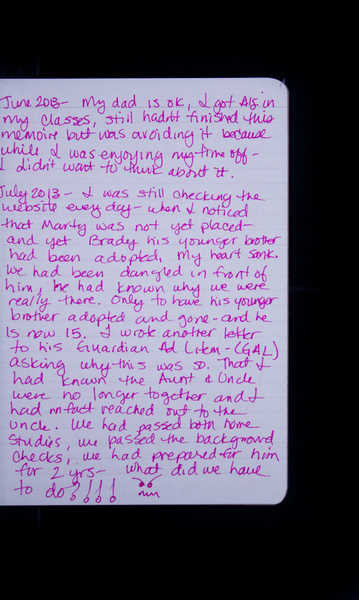 June 2013- My dad is ok, I got A's in
my classes, still hadn't finished this
memoire but was avoiding it because
while I was enjoying my time off-
I didn't want to think about it.
July 2013- I was still checking the
website every day- when I noticed
that Marty was not yet placed-
and yet Brady his younger brother
had been adopted, my heart sank.
We had been dangled in front of
him, he had known why we were
really there. Only to have his younger
brother adopted and gone- and he
is now 15. I wrote another letter
to his Guardian Ad Litem- (GAL)
asking why this was so. That I
had known the Aunt & Uncle
were no longer together and I
had in fact reached out to the
uncle. We had passed both home
studies, we passed the background
checks, we had prepared for him
for 2 yrs- what did we have
to do?!!!